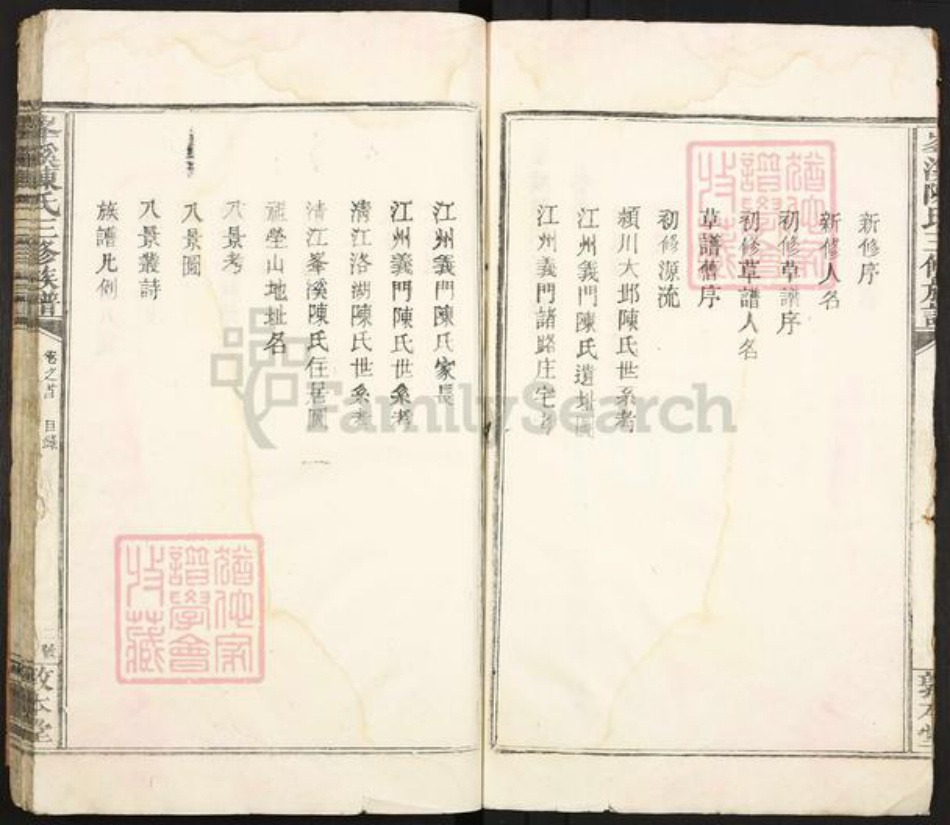 新修序
新修人名
初修草譜序
初修草譜人名
草譜舊序
初修源流
潁川大邱陳氏世系考
江州義門陳氏遺址圖
江州義門諸路庄宅考
江州義門陳氏家長
江州義門陳氏世系考
清江洛湖陳氏世系考
清江峯溪陳氏住居圖
山地址名
八景考
八景圖
八景叢詩
族譜凡例
峯溪陳氏三修族譜
卷之首 目錄
二號
敦本堂
譜學會
收藏
FamilySearch